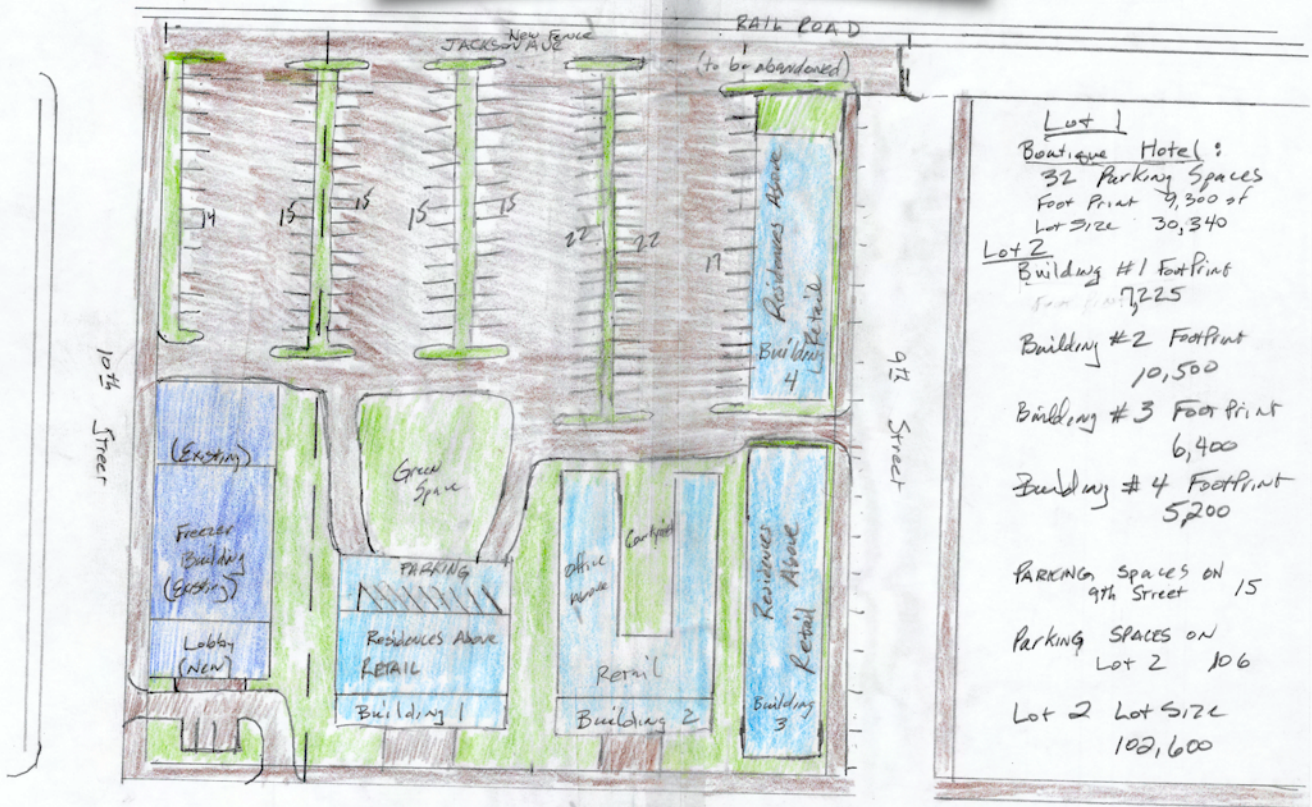 RAIL ROAD
New Fence
JACKSON AVE
(to be abandoned)
14
15
15
15
15
22
22
17
Residences Above
Retail
Building
4
10th
Street
9th
Street
(Existing)
Freezer
Building
(Existing)
Lobby
(New)
Green
Space
PARKING
Residences Above
RETAIL
Building 1
Office
Above
Courtyard
Retail
Building 2
Residences
Above
Retail
Building
3
Lot 1
Boutique Hotel :
32 Parking Spaces
Foot Print 9,300 sf
Lot Size 30,340
Lot 2
Building #1 FootPrint
7,225
Building #2 FootPrint
10,500
Building #3 FootPrint
6,400
Building #4 FootPrint
5,200
PARKING SPACES ON
9th Street 15
PARKING SPACES ON
Lot 2 106
Lot 2 Lot Size
102,600